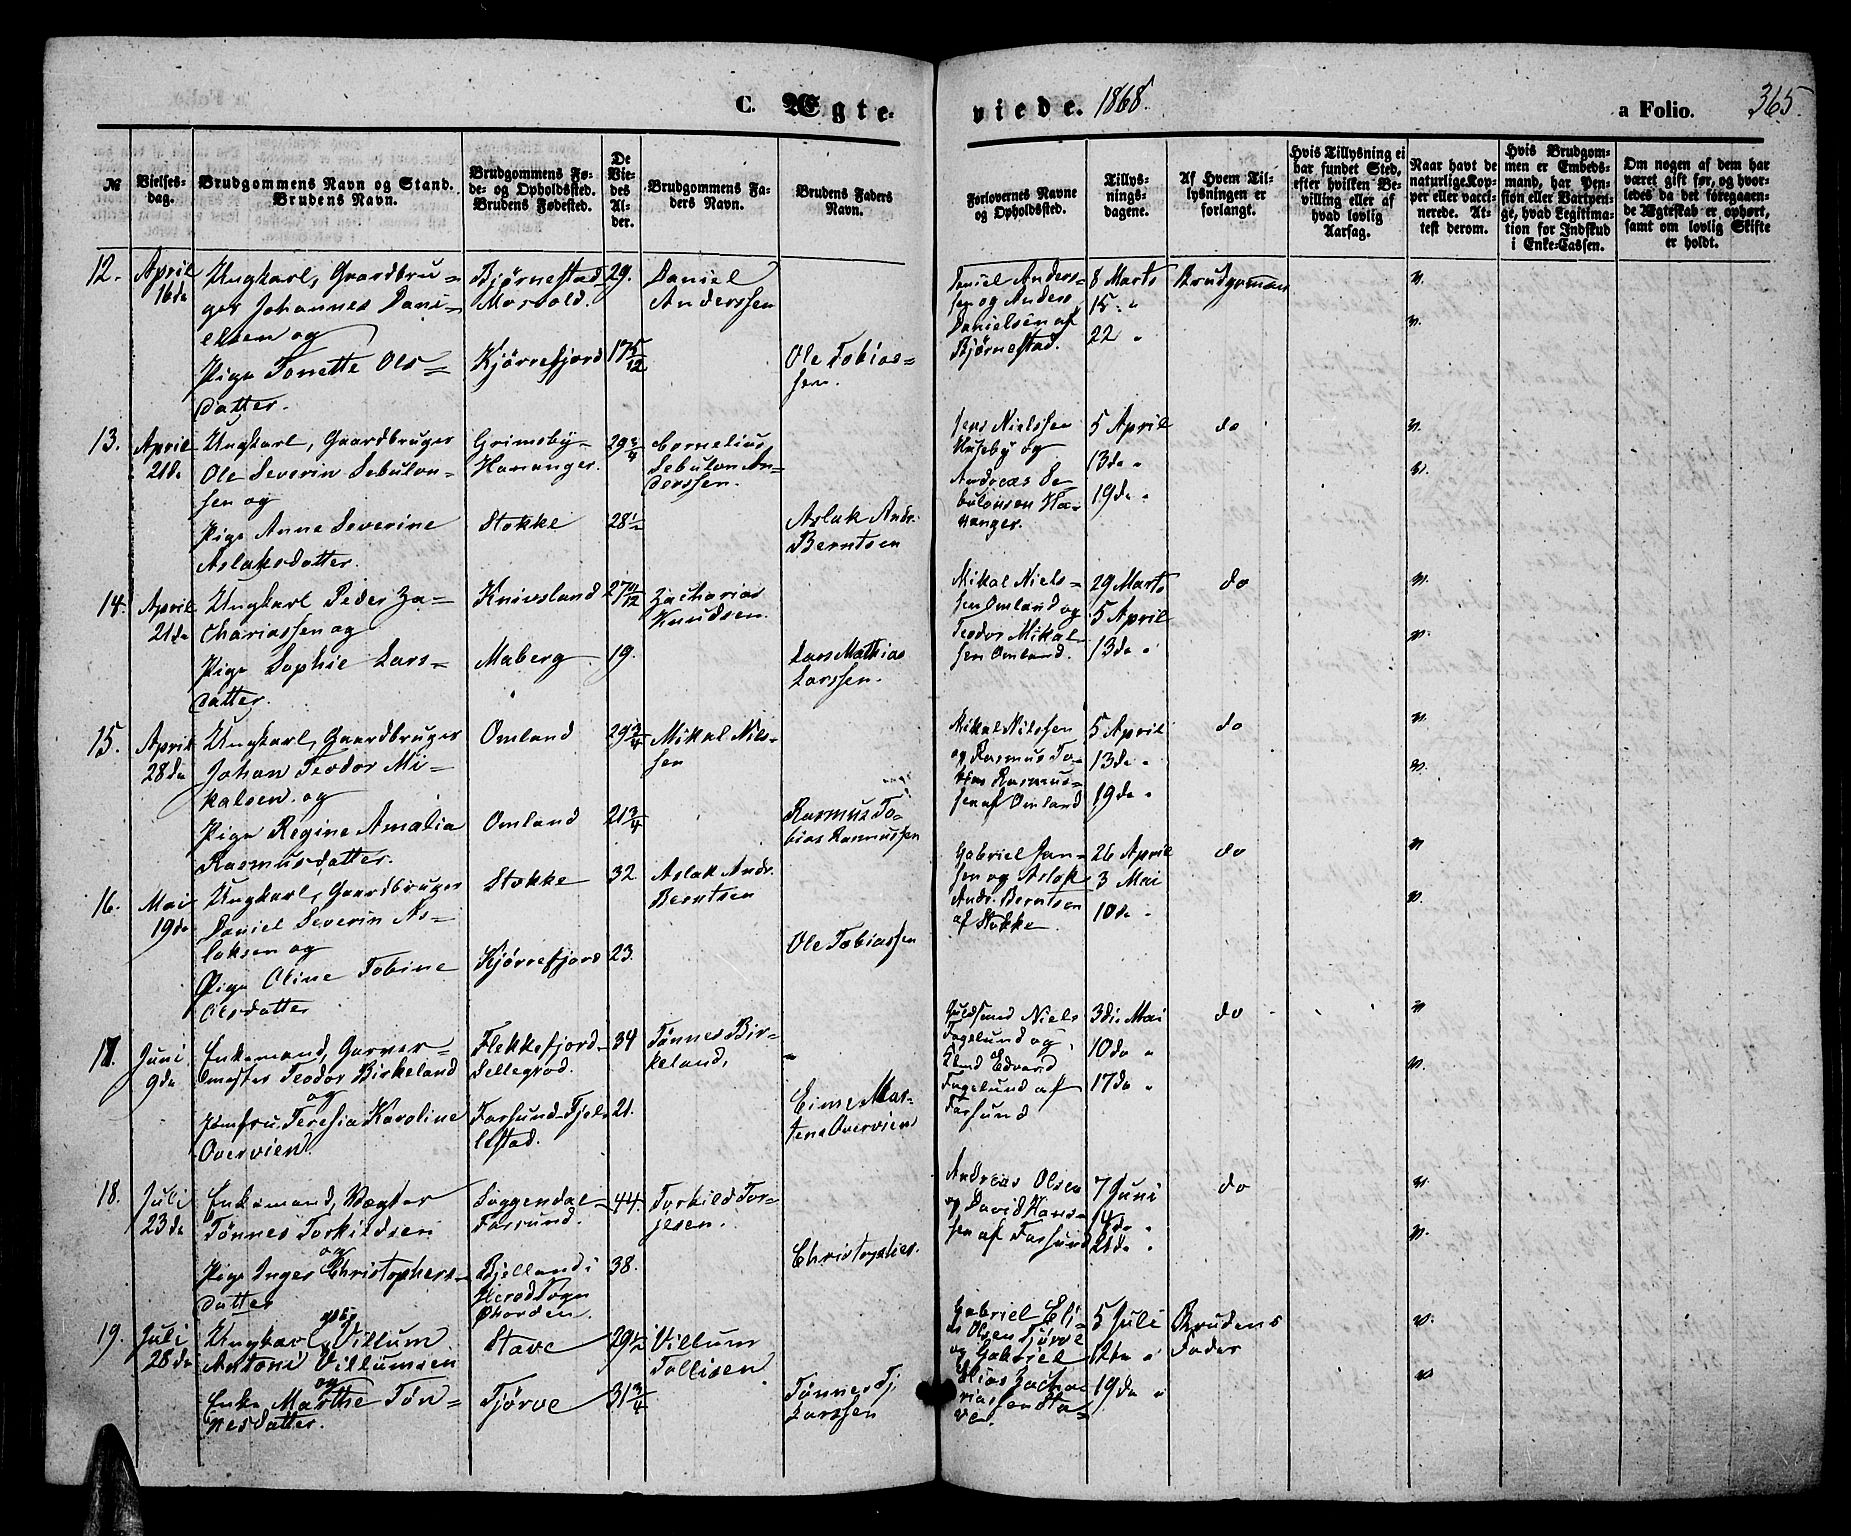 C. Ægte-
viede. 1868.
a Folio.
365.
№
Vielses-
dag.
Brudgommens Navn og Stand.
Brudens Navn.
Brudgommens Fø-
de- og Opholdssted.
Brudens Fødested.
De
Vie-
des
Al-
der.
Brudgommens Fa-
ders Navn.
Brudens Faders
Navn.
Forlovernes Navne
og Opholdssted.
Tillys-
nings-
dagene.
Af Hvem Til-
lysningen er
forlangt.
Hvis Tillysning ei
har fundet Sted,
efter hvilken Be-
villing eller af
hvad lovlig
Aarsag.
Naar havt de
naturlige Kop-
per eller vacci-
nerede. At-
test derom.
Hvis Brudgom-
men er Embeds-
mand, har Pen-
sion eller Vartpen-
ge, hvad Legitima-
tion for Indskud
i Enke-Cassen.
Om nogen af dem har
været gift før, og hvor-
ledes da det foregaaen-
de Ægteskab er ophørt,
samt om lovlig Skifte
er holdt.
12.
April
16de
Ungkarl, Gaardbru-
ger Johannes Dani-
elsen og
Pige Tonette Ols-
datter.
Bjørnestad
Kjørrefjord
29.
17 5/12
Daniel
Anderssen
Ole Tobias-
sen.
Daniel Anders-
sen og Anders
Danielsen af
Bjørnestad.
8 Marts
15 "
22 "
Brudgommen
v.
v.
13.
April
21de
Ungkarl, Gaardbruger
Ole Severin Sebulon-
sen og
Pige Anne Severine
Aslaksdatter.
Grimsby-
Hananger.
Stokke
29 3/4
28 1/2
Cornelius
Sebulon An-
derssen.
Aslak Andr.
Berntsen
Jens Nielssen
Huseby og
Andreas Se-
bulonsen Ha-
nanger.
5 April
13de "
19de "
do
v.
v.
14.
April
21de
Ungkarl Peder Za-
chariassen og
Pige Sophie Lars-
datter.
Knivsland
Maberg
27
19.
Zacharias
Knudsen.
Lars Mathias
Larssen.
Mikal Niels-
sen Omland og
Teodor Mikal-
sen Omland.
29 Marts
5 April
13de "
do
v.
v.
15.
April
28de
Ungkarl, Gaardbruger
Johan Teodor Mi-
kalsen og
Pige Regine Amalia
Rasmusdatter.
Omland
Omland
29 3/4
21 3/4
Mikal Nils-
sen
Rasmus To-
bias Rasmussen
Mikal Nilssen
og Rasmus To-
bias Rasmus-
sen af Omland
5 April
13de "
19de "
do
v.
v.
16.
Mai
19de
Ungkarl, Gaardbruger
Daniel Severin As-
laksen og
Pige Oline Tobine
Olsdatter
Stokke
Kjørrefjord
32
23.
Aslak Andr.
Berntsen
Ole Tobiassen
Gabriel Jan-
sen og Aslak
Andr. Berntsen
af Stokke
26 April
3 Mai
10de "
do
v
v.
17.
Juni
9de
Enkemand, Garver-
mester Teodor Birkeland
og
Jomfru Teresia Karoline
Overvien.
Flekkefjord-
Farsund-Tjel-
34
21.
Tønnes Bir-
keland,
Niels
Fagelund og
Edvard
Fagelund af
Farsund
3die Mai
10de "
17de "
do
v
v.
18.
Juli
23de
Enkemand, Vægter
Tønnes Torkildsen
og
Pige Inger Christophers-
datter
Soggendal-
Farsund.
Bjelland i
44.
38.
Torkild Tor-
jesen.
Andreas Olsen
og David Hans-
sen af Farsund
7 Juni
14de
21de "
do
v.
v.
19.
Juli
28de
Ungkarl Villum
Antoni Villumsen
og
Enke Marthe Tøn-
nesdatter.
Stave
Tjørve
29 1/2
31 3/4
Villum
Tollisen
Tønnes Tj
Larssen
Gabriel Eli-
as Olsen Tjørve
og Gabriel
Elias Zacha-
riassen Sta-
ve.
5 Juli
12te "
19de "
Brudens
Fader
v.
v.